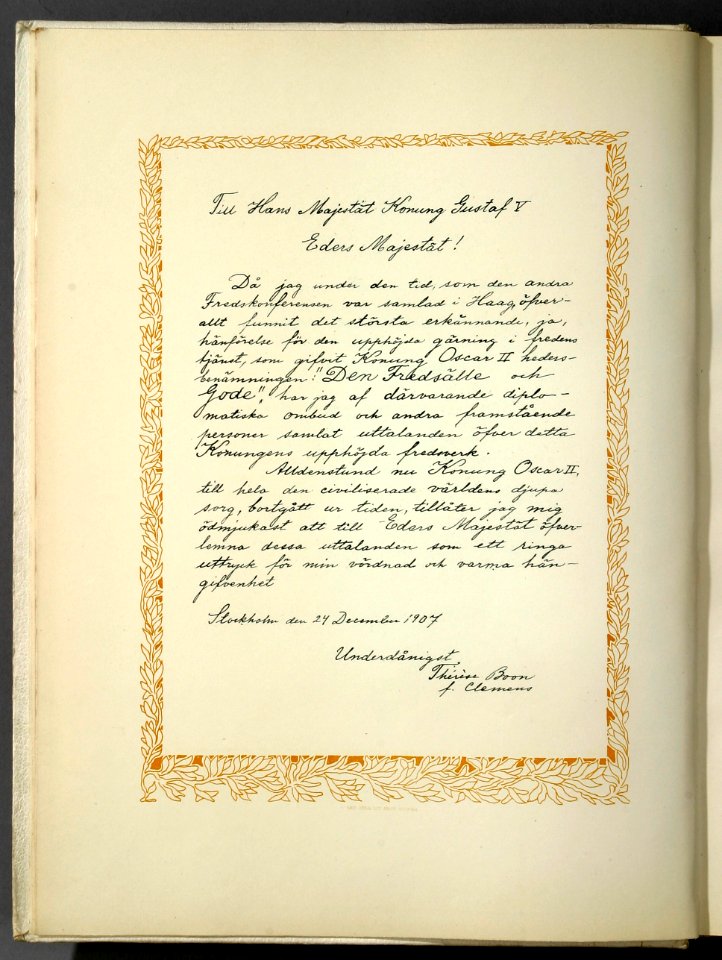 Till Hans Majestät Konung Gustaf V
Eders Majestät!
Då jag under den tid, som den andra
Fredskonferensen var samlad i Haag, öfver-
allt funnit det största erkännande, ja,
hänförelse för den upphöjda gärning i fredens
tjänst, som gifvit Konung Oscar II heders-
benämningen: "Den Fredsälle och
Gode", har jag af därvarande diplo-
matiska ombud och andra framstående
personer samlat uttalanden öfver detta
Konungens upphöjda fredsverk.
Alldenstund nu Konung Oscar II,
till hela den civiliserade världens djupa
sorg, bortgått ur tiden, tillåter jag mig
ödmjukast att till Eders Majestät öfver-
lemna dessa uttalanden som ett ringa
uttryck för min vördnad och varma hän-
gifvenhet
Stockholm den 24 December 1907
Underdånigst
Thérèse Boon
f. Clemens